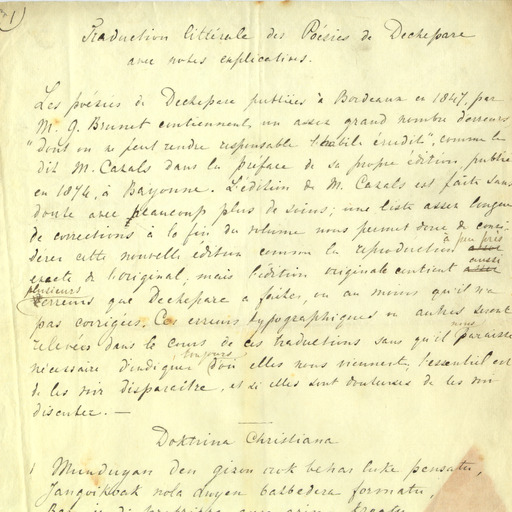 1)
Traduction littérale des Poésies de Dechepare
avec notes explicatives.
Les poésies de Dechepare publiées à Bordeaux en 1847, par
M. G. Brunet contiennent un assez grand nombre d'erreurs
"dont on ne peut rendre responsable l'habile érudit", comme le
dit M. Cazals dans la préface de sa propre édition publiée
en 1874, à Bayonne. L'édition de M. Cazals est faite sans
doute avec beaucoup plus de soins; une liste assez longue
de corrections à la fin du volume nous permet donc de consi-
à peu près
derer cette nouvelle édition comme la reproduction
exacte de l'original, mais l'édition originale contient aussi
plusieurs
erreurs que Dechepare a faites, ou au moins qu'il n'a
pas corrigées. Ces erreurs typographiques ou autres seront
nous
relevées dans le cours de ces traductions sans qu'il paraisse
toujours
nécessaire d'indiquer d'où elles nous viennent, l'essentiel est
de les voir disparaître, et si elles sont douteuses de les voir
discuter. —
Doktrina Christiana
1 Munduyan den gizon orok behar luke pensatu,
Jangoikoak nola duyen batbedera formatu,